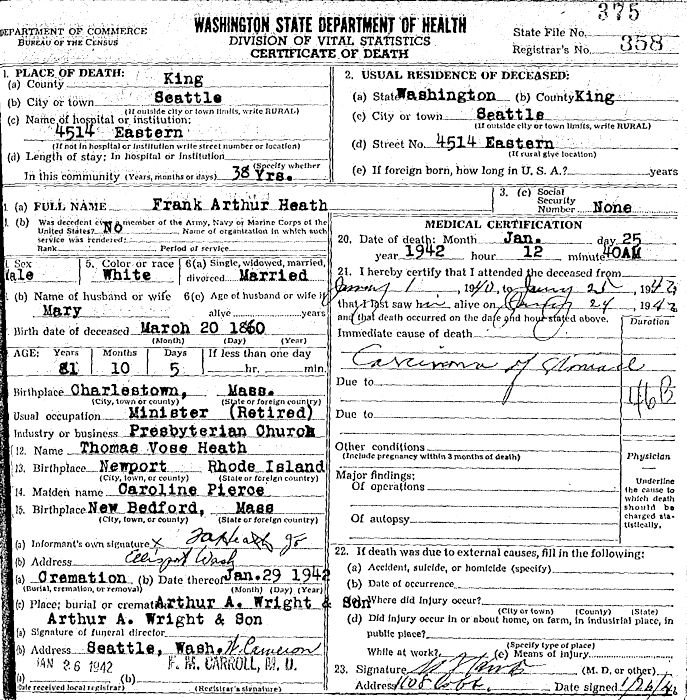 375
WASHINGTON STATE DEPARTMENT OF HEALTH
DEPARTMENT OF COMMERCE
BUREAU OF THE CENSUS
DIVISION OF VITAL STATISTICS
CERTIFICATE OF DEATH
State File No.
Registrar's No. 358
1. PLACE OF DEATH:
(a) County King
(b) City or town Seattle
(If outside city or town limits, write RURAL)
(c) Name of hospital or institution:
4514 Eastern
(If not in hospital or institution write street number or location)
(d) Length of stay: In hospital or institution
(Specify whether
In this community (Years, months or days) 38 Yrs.
2. USUAL RESIDENCE OF DECEASED:
(a) State Washington (b) County King
(c) City or town Seattle
(If outside city or town limits, write RURAL)
(d) Street No. 4514 Eastern
(If rural give location)
(e) If foreign born, how long in U. S. A.? years
(a) FULL NAME Frank Arthur Heath
3. (c) Social Security Number None
(b) Was decedent ever a member of the Army, Navy or Marine Corps of the
United States? No Name of organization in which such
service was rendered:
Rank Period of service
Sex
Male
5. Color or race
White
6(a) Single, widowed, married,
divorced Married
(b) Name of husband or wife
Mary
6(c) Age of husband or wife if
alive years
Birth date of deceased March 20 1860
(Month) (Day) (Year)
AGE: Years Months Days If less than one day
81 10 5 hr. min.
Birthplace Charlestown, Mass.
(City, town or county) (State or foreign country)
Usual occupation Minister (Retired)
Industry or business Presbyterian Church
12. Name Thomas Vose Heath
13. Birthplace Newport Rhode Island
(City, town, or county) (State or foreign country)
14. Maiden name Caroline Pierce
15. Birthplace New Bedford, Mass
(City, town, or county) (State or foreign country)
(a) Informant's own signature X F A Heath Jr
(b) Address Ellisport Wash
(a) Cremation (b) Date thereof Jan. 29 1942
(Burial, cremation, or removal) (Month) (Day) (Year)
(c) Place; burial or cremation Arthur A. Wright & Son
Arthur A. Wright & Son
(a) Signature of funeral director
(b) Address Seattle, Wash. W. Cameron
JAN 26 1942 F. M. CARROLL, M. D.
(a) (b)
(Date received local registrar) (Registrar's signature)
MEDICAL CERTIFICATION
20. Date of death: Month Jan. day 25
year 1942 hour 12 minute 40AM
21. I hereby certify that I attended the deceased from
January 1 1940 to Jany 25 1942
that I last saw him alive on 24 1942
and that death occurred on the date and hour stated above.
Duration
Immediate cause of death
Carcinoma of Stomach
Due to
46B
Due to
Other conditions
(Include pregnancy within 3 months of death)
Physician
Major findings:
Of operations
Of autopsy
Underline
the cause to
which death
should be
charged sta-
tistically.
22. If death was due to external causes, fill in the following:
(a) Accident, suicide, or homicide (specify)
(b) Date of occurrence
(c) Where did injury occur?
(City or town) (County) (State)
(d) Did injury occur in or about home, on farm, in industrial place, in
public place?
(Specify type of place)
While at work? (e) Means of injury
23. Signature (M. D. or other)
Address 1108 Cobb Date signed 1/26/42